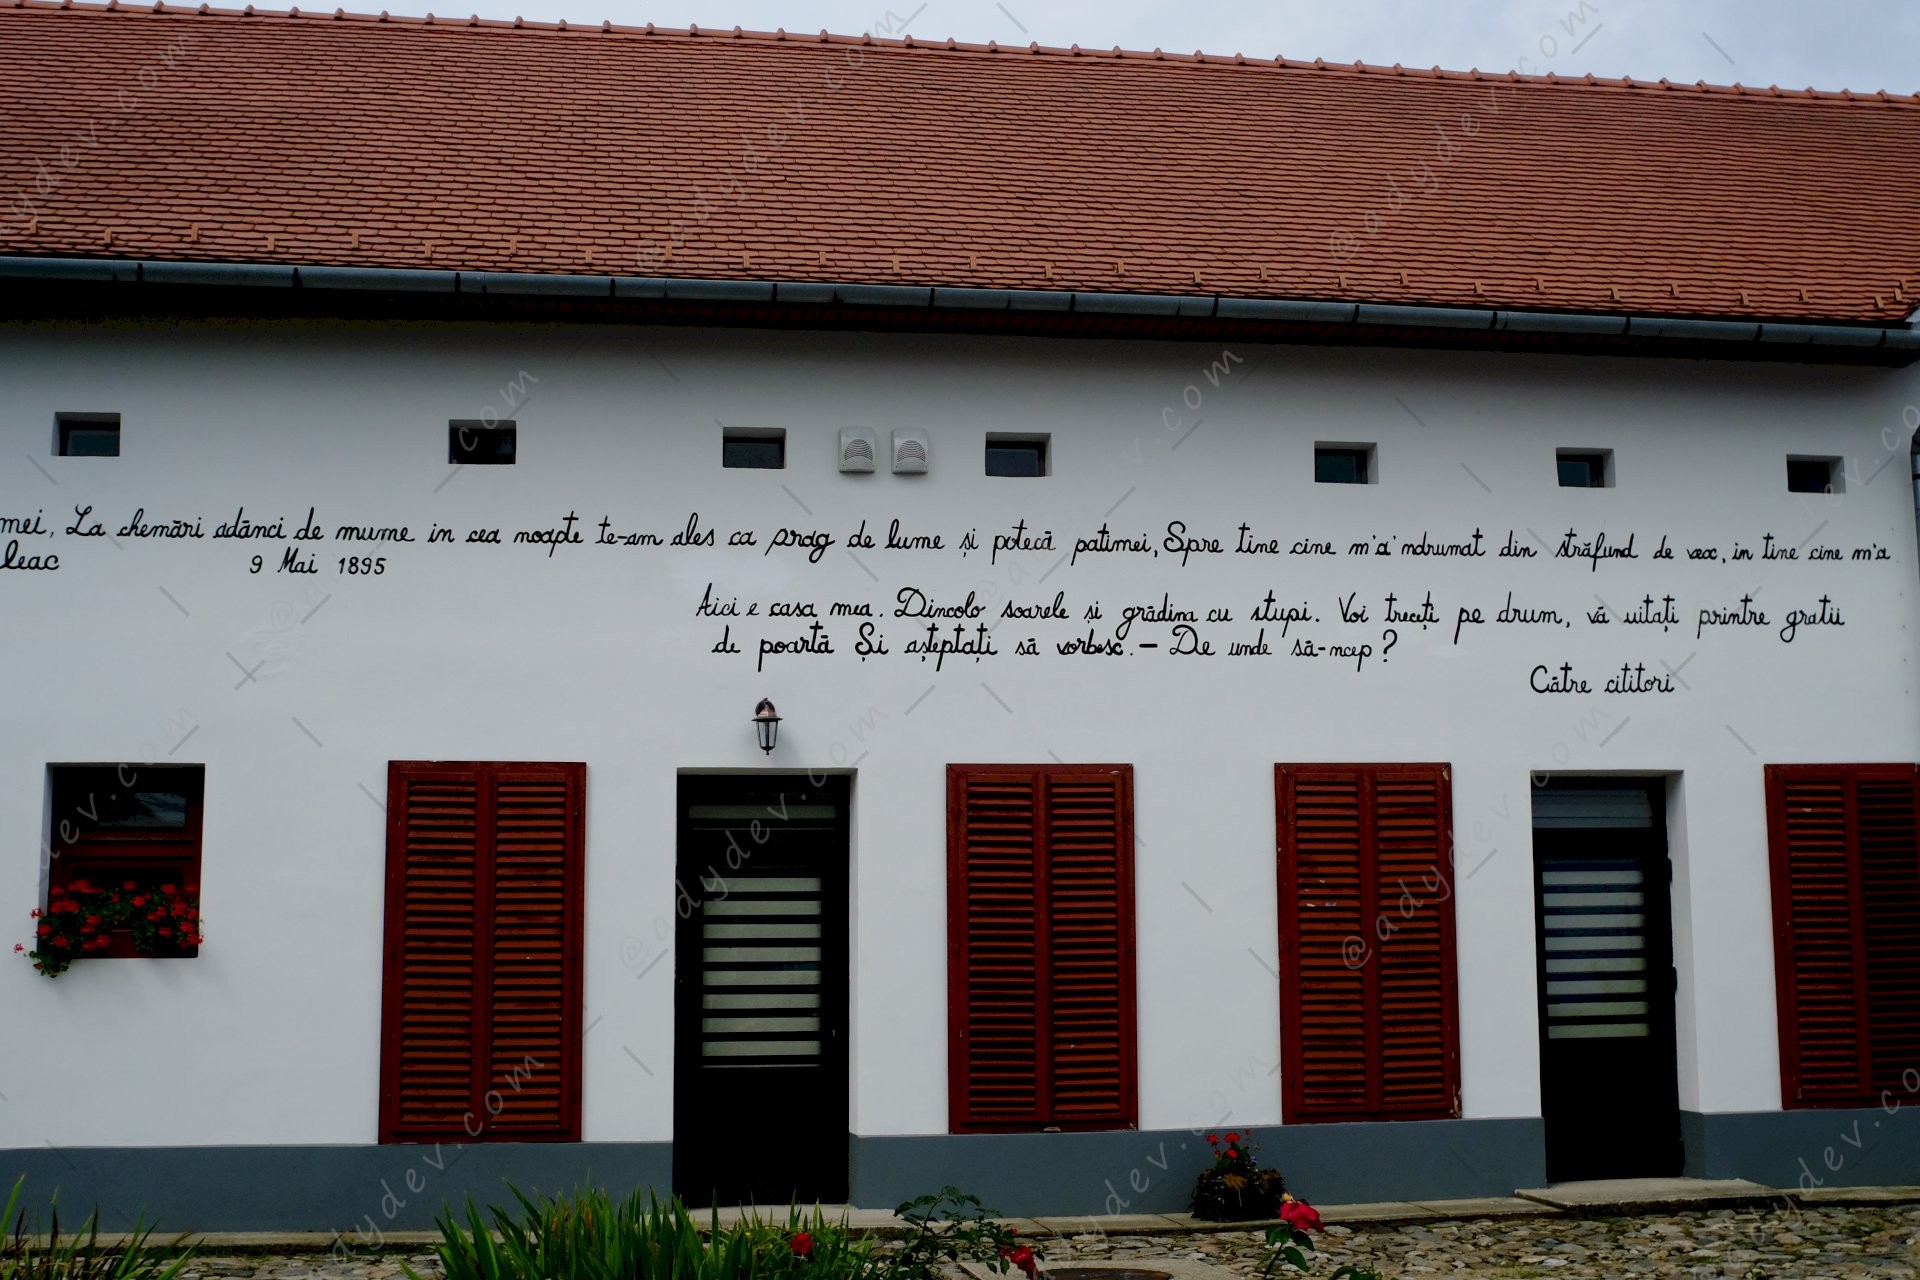 mei, La chemări adânci de mume in cea noapte te-am ales ca prag de lume și potecă patimei, Spre tine cine m'a'ndrumat din străfund de veac, in tine cine m'a
leac 9 Mai 1895
Aici e casa mea. Dincolo soarele si grădina cu stupi. Voi treceți pe drum, vă uitați printre gratii
de poartă Și așteptați să vorbesc. — De unde să-ncep?
Către cititori
@adydev.com